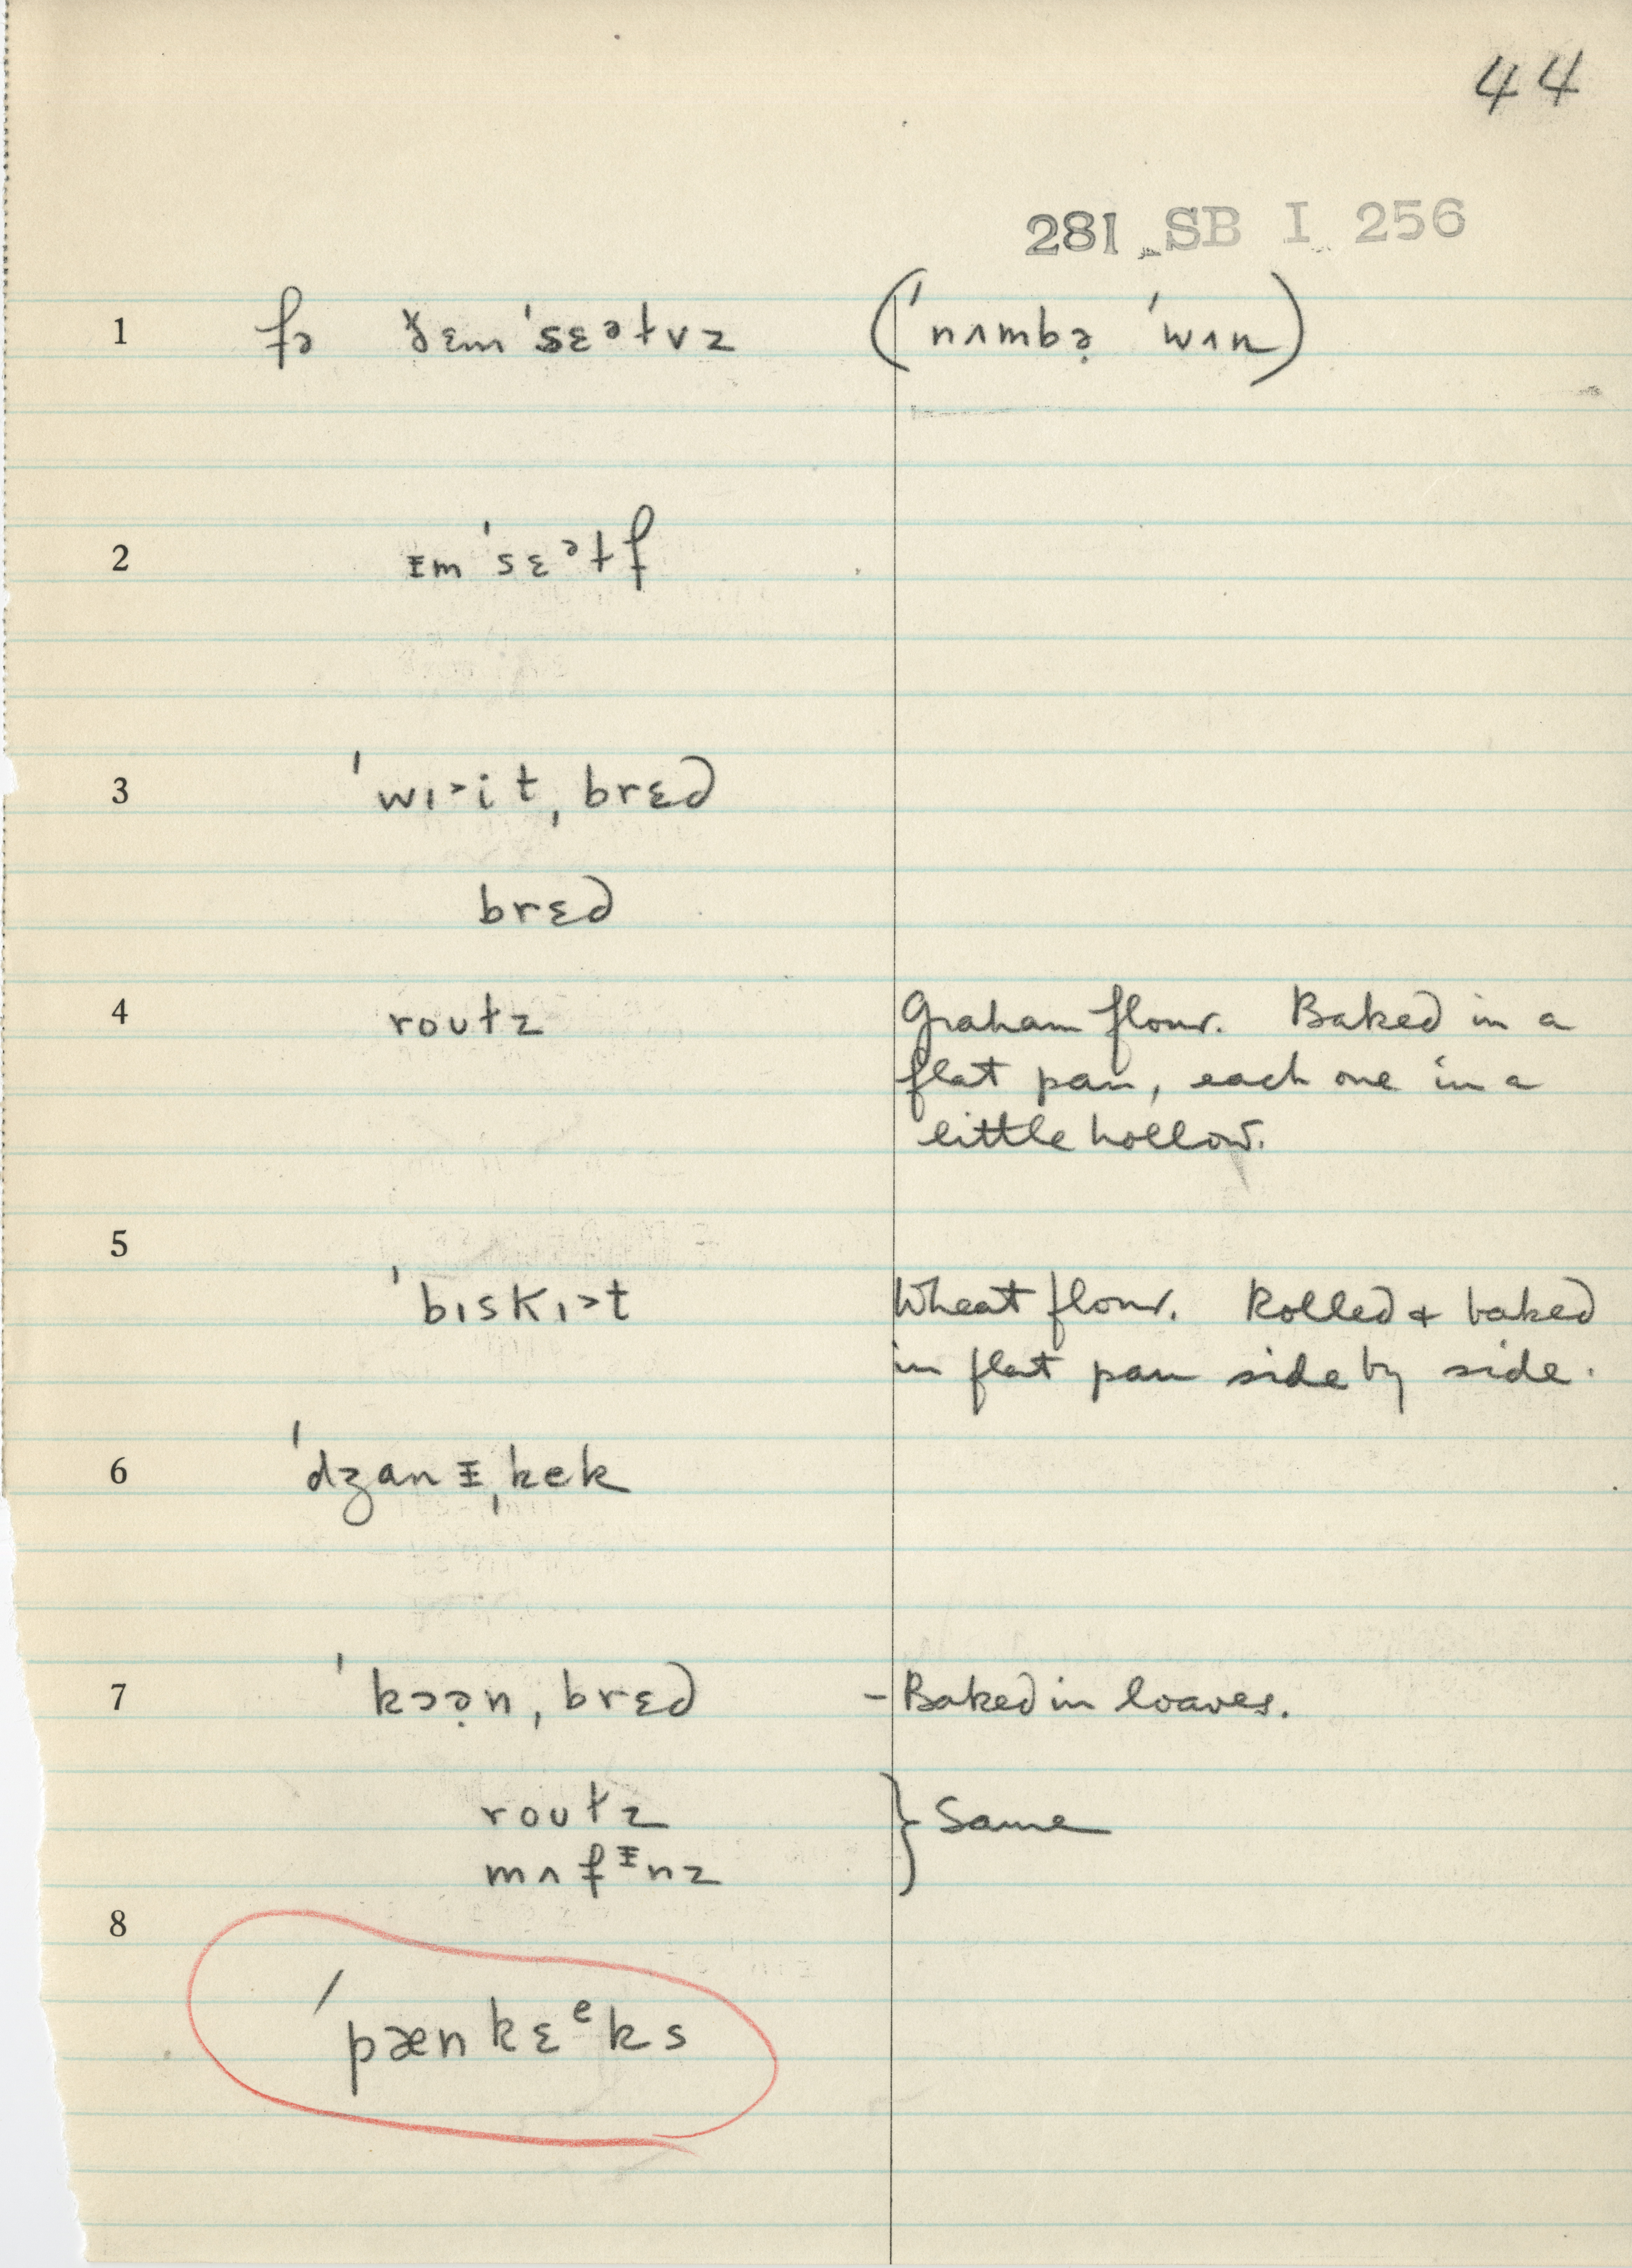 44
281 SB I 256
1 fə ð̆ɛmˈsɛᵊɫvz (ˈnʌmbə̣ ˈwʌn)
2 ᵻmˈsɛᵊɫf
3 ˈwɪ˃itˌbrɛd
brɛd
4 roʊɫz Graham flour. Baked in a
flat pan, each one in a
little hollow.
5
ˈbɪskɪ˃t Wheat flour. Rolled & baked
in flat pan side by side.
6 ˈdʒanᵻˌkek
7 ˈkɔə̣nˌbrɛd – Baked in loaves.
roʊɫz } Same
mʌfᵻnz
8
ˈpænkɛᵉks